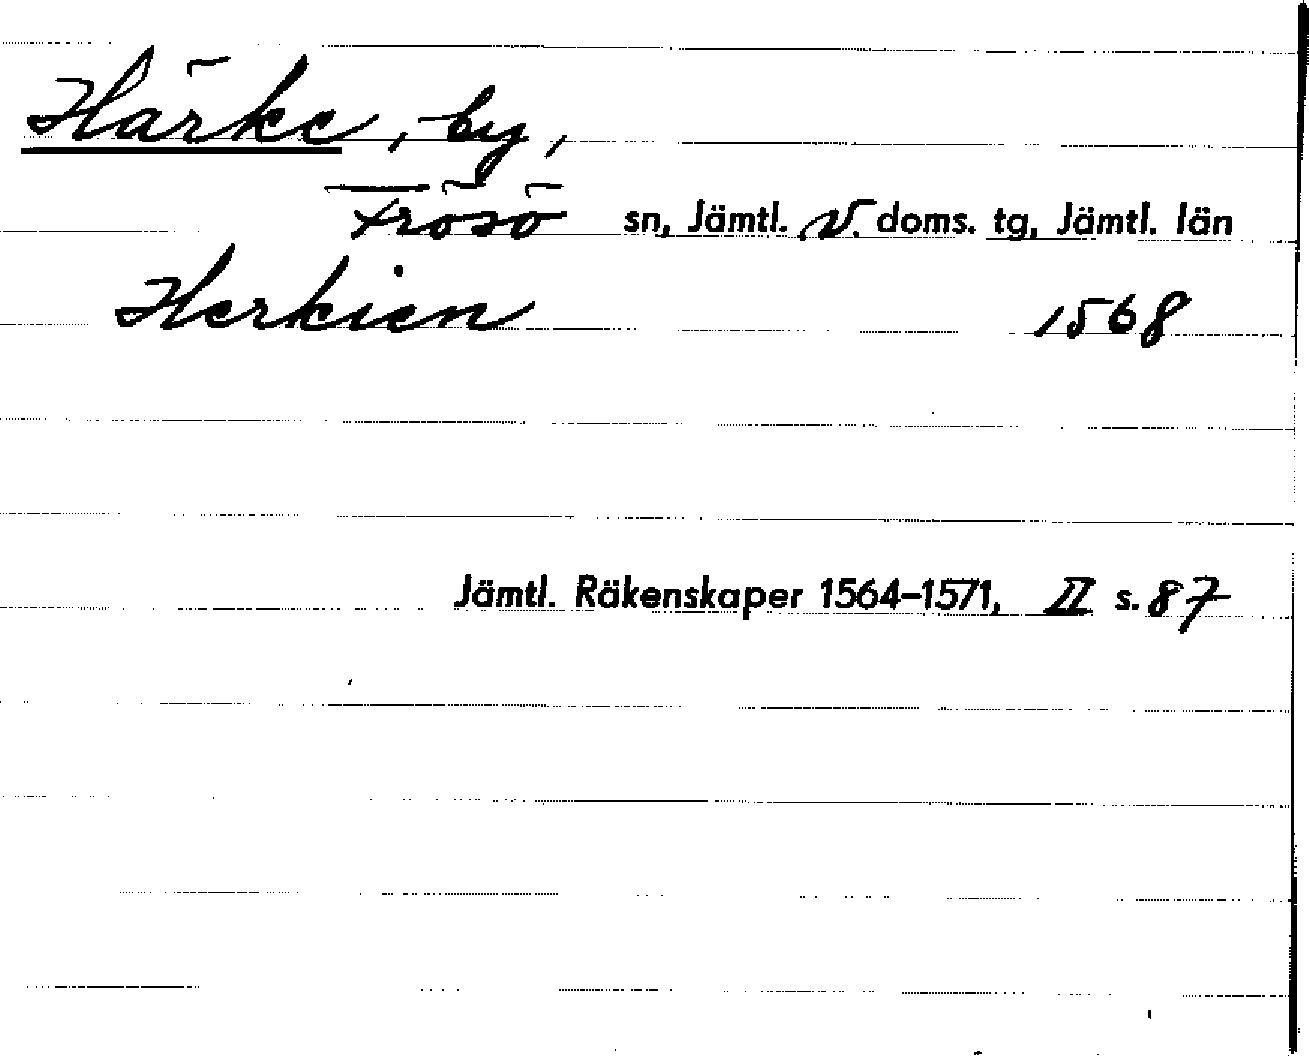 Härke, by,
Frösö sn, Jämtl. v. doms. tg, Jämtl. län
Herkien 1568
Jämtl. Räkenskaper 1564–1571, II s. 87